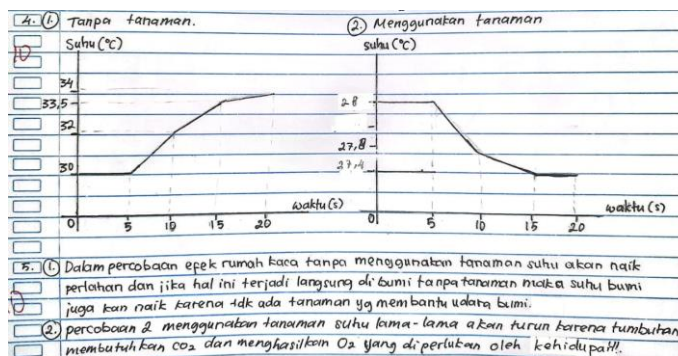 4. ① Tanpa tanaman. ② Menggunakan tanaman
10
Suhu (°C) suhu (°C)
34
33,5 28
32
27,8
30 27,4
waktu (s) waktu (s)
0 5 10 15 20 0 5 10 15 20
5. ① Dalam percobaan efek rumah kaca tanpa menggunakan tanaman suhu akan naik
perlahan dan jika hal ini terjadi langsung di bumi tanpa tanaman maka suhu bumi
juga kan naik karena tdk ada tanaman yg membantu udara bumi.
② percobaan 2 menggunakan tanaman suhu lama-lama akan turun karena tumbuhan
membutuhkan CO2 dan menghasilkan O2 yang diperlukan oleh kehidupan!!.